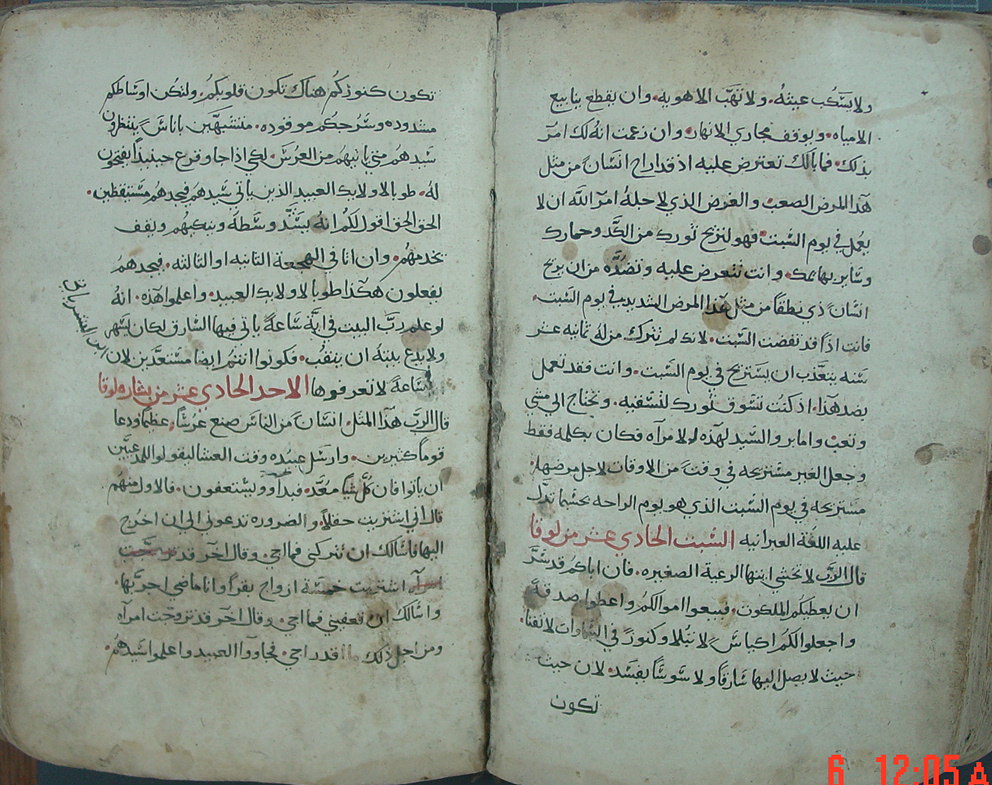 ولا يسكب غيثهُ. ولا تهب الاهويه. وان يقطع ينابيع
الامياه. ويوقف مجاري الانهار. وان زعمت انهُ لك امر
بذلك. فما بالك تعترض عليه اذ قد اراح انسان من مثل
هذا المرض الصعب والغرض الذي لاجلهُ امر الله ان لا
يعمل في يوم السبت. فهو لتريح ثورك من الكد وحمارك
وسايربهايمك. وانت تتعرض عليه وتضده من ان يريح
انسان ذي نطقا من مثل هذا المرض الشديد في يوم السبت.
فانت اذا قد نقضت السبت. لانك لم تترك من له ثمانيه عشر
سنه يتعذب ان يستريح في يوم السبت. وانت فقد تعمل
بضد هذا. اذ كنت تسوق ثورك لتسقيه. وتحتاج الى مشي
وتعب وامابر والسيد لهذه لولا مرآه فكان بكلمه فقط
وجعل الغير مستريحه في وقت من الاوقات لاجل مرضها.
مستريحه في يوم السبت الذي هو يوم الراحه بحسبما تدل
عليه اللغة العبرانيه السبت الحادي عشر من لوقا
قال الرب لا تخشي ايتها الرعية الصغيره. فان اباكم قد سر
ان يعطيكم الملكوت. فبيعوا اموالكم واعطوا صدقة
واجعلوا لكم اكياس لا تبلا وكنوز في السماوات لا تفنا.
حيث لا يصل اليها سارقا ولا سوسا يفسد. لان حيث
تكون
تكون كنوزكم هناك تكون قلوبكم. ولتكن اوساطكم
مشدوده وسرجكم موقوده. متشبهين باناس ينتظرون
سيدهم متى ياتيهم من العرس. لكي اذا جا وقرع حينيذا يفتحون
له. طوبا لاولايك العبيد الذين ياتي سيدهم فيجدهم مستيقظين.
الحق الحق اقول لكم انهُ يشد وسطهُ ويتكيهم ويقف
يخدمهم. وان اتا في الهجعة الثانيه او الثالثه. فيجدهم
يفعلون هكذا طوبا لاولايك العبيد. واعلموا هذه. انهُ
لو علم رب البيت في اية ساعة ياتي فيها السارق لكان يسهر
ولا يدع بيتهُ ان ينقب. فكونوا انتم ايضا مستعدين لان
ابن البشر ياتي
الساعة لا تعرفوها الاحد الحادي عشر من بشارة لوقا
قال الرب هذا المثل. انسان من الناس صنع عرسا عظيما ودعا
قوما كثيرين. وارسل عبده وقت العشا ليقولوا للمدعيين
ان ياتوا فان كل شيا معد. فبداوو يستعفون. فالاول منهم
قال اني اشتريت حقلا والضروره تدعوني الى ان اخرج
اليها فاسالك ان تتركني فما اجي. وقال اخر قد
اشتريت خمسة ازواج بقر وانا ماضي اجربها.
واسالك ان تعفيني فما اجي. وقال اخر قد تزوجت امرآه
ومن اجل ذلك ما اقدر اجي. فجاووا العبيد واعلموا سيدهم.
6 12:05 A